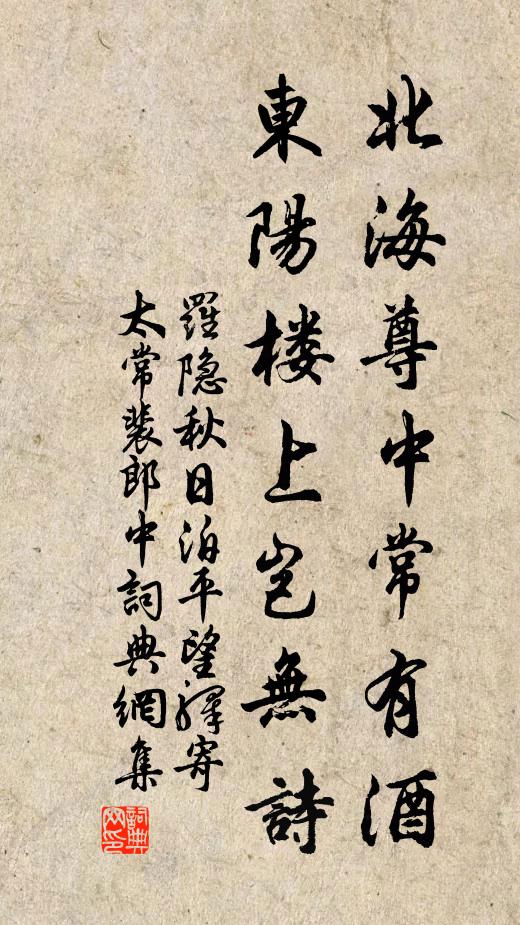 北海尊中常有酒
東陽楼上岂無詩
羅隐秋日泊平望驛寄
太常裴郎中詞典網集
詞典
网印